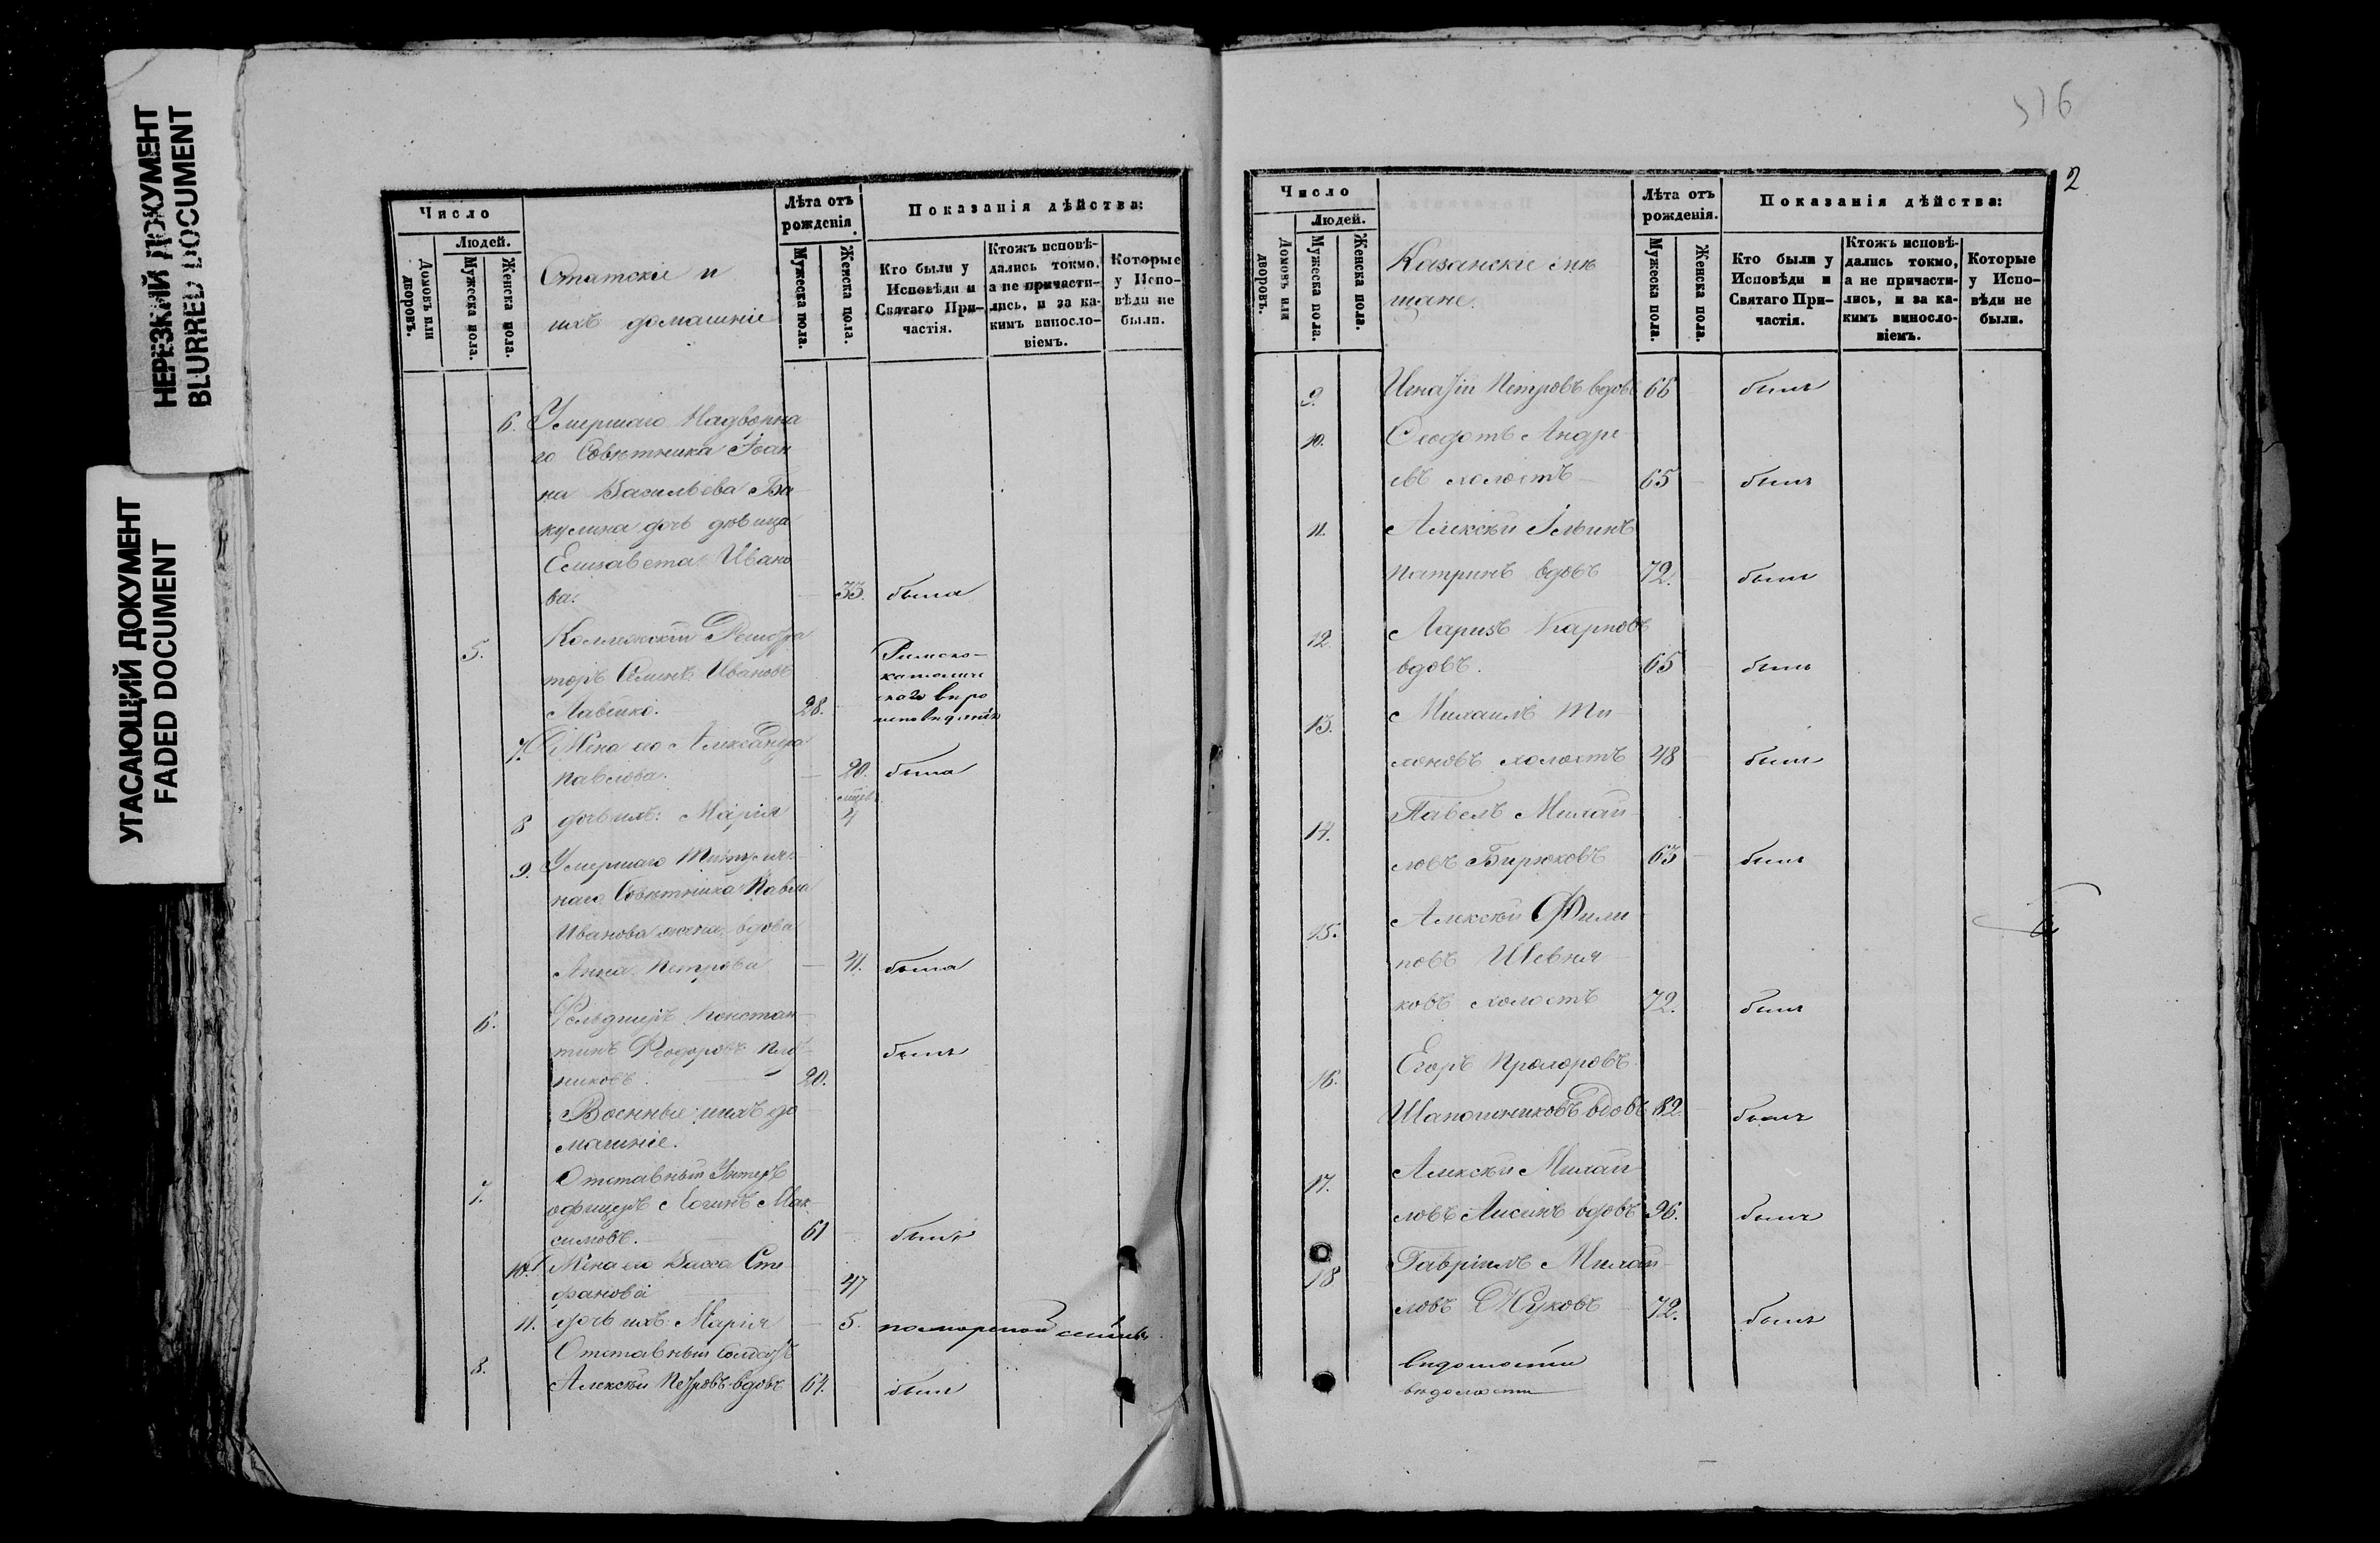 НЕРЕЗКИЙ ДОКУМЕНТ
BLURRED DOCUMENT
УГАСАЮЩИЙ ДОКУМЕНТ
FADED DOCUMENT
Число
Людей.
Домовъ или дворовъ.
Мужеска пола.
Женска пола.
Статскіе и
ихъ домашніе
Лѣта отъ рожденія.
Мужеска пола.
Женска пола.
Показанія дѣйства:
Кто были у Исповѣди и Святаго Причастія.
Ктожъ исповѣдались токмо, а не причастились, и за какимъ винословіемъ.
Которые у Исповѣди не были.
6. Умершаго Надворна
го Совѣтника Іоан
на Васильева Ба
кулина дочь дѣвица
Елизавета Ивано
ва. 33. была
5. Коллежскій Регистра
торъ Ивановъ
28. Римско-
католиче
скаго вѣро
исповѣданія
7. Жена его Александра
Павлова. 20. была
8 дочь ихъ: Марія 4
9. Умершаго Титуляр
наго Совѣтника Павла
Иванова жена вдова
Анна Петрова 41. была
6. Фельдшеръ Констан
тинъ Ѳеодоровъ
никовъ. 20. былъ
Военные и ихъ до
машніе.
7. Отставный Унтеръ
офицеръ Логинъ Мак
симовъ. 61 былъ
10. Жена его Васса Сте
фанова 47
11. дочь ихъ: Марія 5.
8. Отставный Солдатъ
Алексѣй Петровъ вдовъ 64. былъ
516
2
Число
Людей.
Домовъ или дворовъ.
Мужеска пола.
Женска пола.
Казанскіе мѣ
щане.
Лѣта отъ рожденія.
Мужеска пола.
Женска пола.
Показанія дѣйства:
Кто были у Исповѣди и Святаго Причастія.
Ктожъ исповѣдались токмо, а не причастились, и за какимъ винословіемъ.
Которые у Исповѣди не были.
9. Игнатій Петровъ вдовъ 66 былъ
10. Ѳеодотъ Андре
евъ холостъ 65 былъ
11. Алексѣй Ильинъ
Патринъ вдовъ 72. былъ
12. Карповъ
вдовъ. 65 былъ
13. Михаилъ Ти
хоновъ холостъ 48 былъ
14. Павелъ Михай
ловъ Бирюковъ 63 былъ
15. Алексѣй Фили
повъ Шевня
ковъ холостъ 72. былъ
16. Егоръ Прохоровъ
Шапошниковъ вдовъ 82 былъ
17. Алексѣй Михай
ловъ Лисинъ вдовъ 96. былъ
18 Гавріилъ Михай
ловъ Жуковъ 72. былъ
вѣдомости
вѣдомости